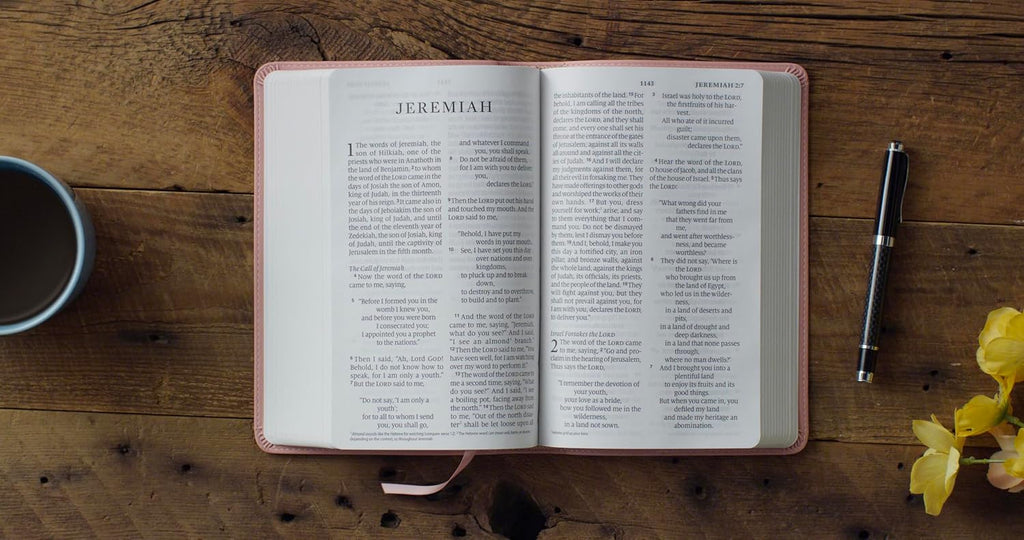 JEREMIAH
1 The words of Jeremiah, the
son of Hilkiah, one of the
priests who were in Anathoth in
the land of Benjamin, 2 to whom
the word of the LORD came in the
days of Josiah the son of Amon,
king of Judah, in the thirteenth
year of his reign. 3 It came also in
the days of Jehoiakim the son of
Josiah, king of Judah, and until
the end of the eleventh year of
Zedekiah, the son of Josiah, king
of Judah, until the captivity of
Jerusalem in the fifth month.
The Call of Jeremiah
4 Now the word of the LORD
came to me, saying,
5 "Before I formed you in the
womb I knew you,
and before you were born
I consecrated you;
I appointed you a prophet
to the nations."
6 Then I said, "Ah, Lord GOD!
Behold, I do not know how to
speak, for I am only a youth."
7 But the LORD said to me,
"Do not say, 'I am only a
youth';
for to all to whom I send
you, you shall go,
and whatever I command
you, you shall speak.
8 Do not be afraid of them,
for I am with you to deliver
you,
declares the LORD."
9 Then the LORD put out his hand
and touched my mouth. And the
LORD said to me,
"Behold, I have put my
words in your mouth.
10 See, I have set you this day
over nations and over
kingdoms,
to pluck up and to break
down,
to destroy and to overthrow,
to build and to plant."
11 And the word of the LORD
came to me, saying, "Jeremiah,
what do you see?" And I said,
"I see an almond branch."
12 Then the LORD said to me, "You
have seen well, for I am watching
over my word to perform it."
13 The word of the LORD came to
me a second time, saying, "What
do you see?" And I said, "I see
a boiling pot, facing away from
the north." 14 Then the LORD said
to me, "Out of the north disas-
ter shall be let loose upon all
1143
JEREMIAH 2:7
the inhabitants of the land. 15 For
behold, I am calling all the tribes
of the kingdoms of the north,
declares the LORD, and they shall
come, and every one shall set his
throne at the entrance of the gates
of Jerusalem, against all its walls
all around and against all the cit-
ies of Judah. 16 And I will declare
my judgments against them, for
all their evil in forsaking me. They
have made offerings to other gods
and worshiped the works of their
own hands. 17 But you, dress
yourself for work; arise, and say
to them everything that I com-
mand you. Do not be dismayed
by them, lest I dismay you before
them. 18 And I, behold, I make you
this day a fortified city, an iron
pillar, and bronze walls, against
the whole land, against the kings
of Judah, its officials, its priests,
and the people of the land. 19 They
will fight against you, but they
shall not prevail against you, for
I am with you, declares the LORD,
to deliver you."
Israel Forsakes the LORD
2 The word of the LORD came
to me, saying, 2 "Go and pro-
claim in the hearing of Jerusalem,
Thus says the LORD,
"I remember the devotion of
your youth,
your love as a bride,
how you followed me in the
wilderness,
in a land not sown.
3 Israel was holy to the LORD,
the firstfruits of his har-
vest.
All who ate of it incurred
guilt;
disaster came upon them,
declares the LORD."
4 Hear the word of the LORD,
O house of Jacob, and all the clans
of the house of Israel. 5 Thus says
the LORD:
"What wrong did your
fathers find in me
that they went far from
me,
and went after worthless-
ness, and became
worthless?
6 They did not say, 'Where is
the LORD
who brought us up from
the land of Egypt,
who led us in the wilder-
ness,
in a land of deserts and
pits,
in a land of drought and
deep darkness,
in a land that none passes
through,
where no man dwells?'
7 And I brought you into a
plentiful land
to enjoy its fruits and its
good things.
But when you came in, you
defiled my land
and made my heritage an
abomination.